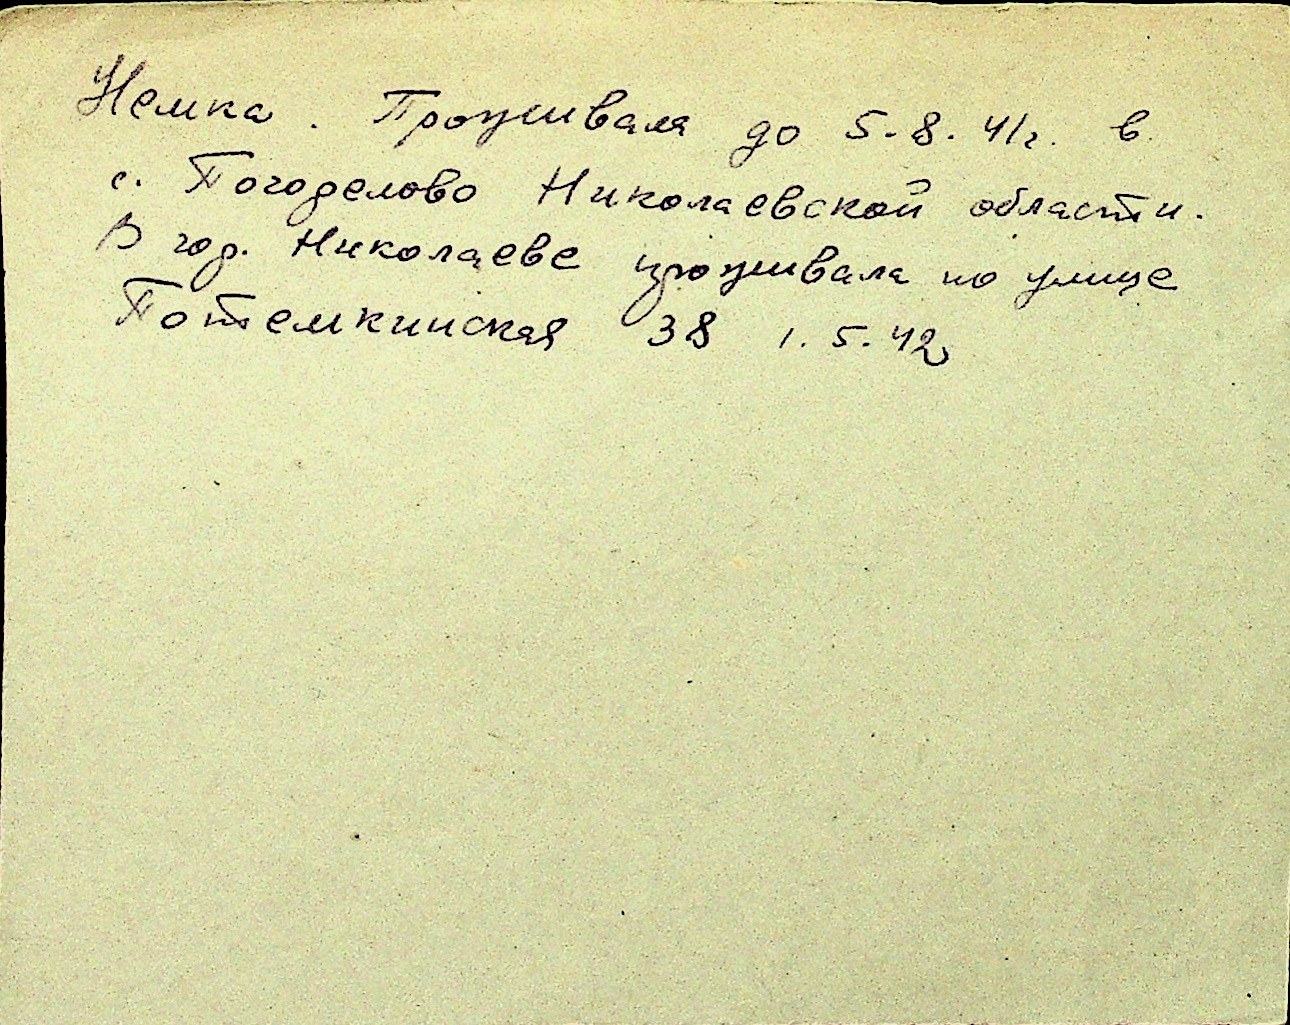 Немка. Проживала до 5.8.41г. в
с. Погоделово Николаевской области.
В гор. Николаеве проживала по улице
Потемкинская 38 1.5.42